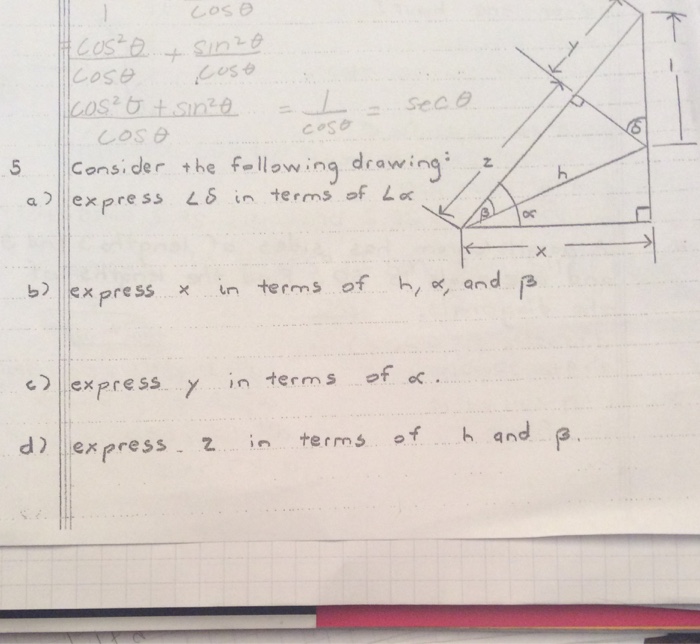 1 cosθ
= cos²θ + sin²θ
cosθ cosθ
cos²θ + sin²θ = 1 = secθ
cosθ cosθ
5 Consider the following drawing:
a) express ∠δ in terms of ∠α
b) express x in terms of h, α, and β
c) express y in terms of α.
d) express z in terms of h and β.
y
1
δ
z
h
β
α
x